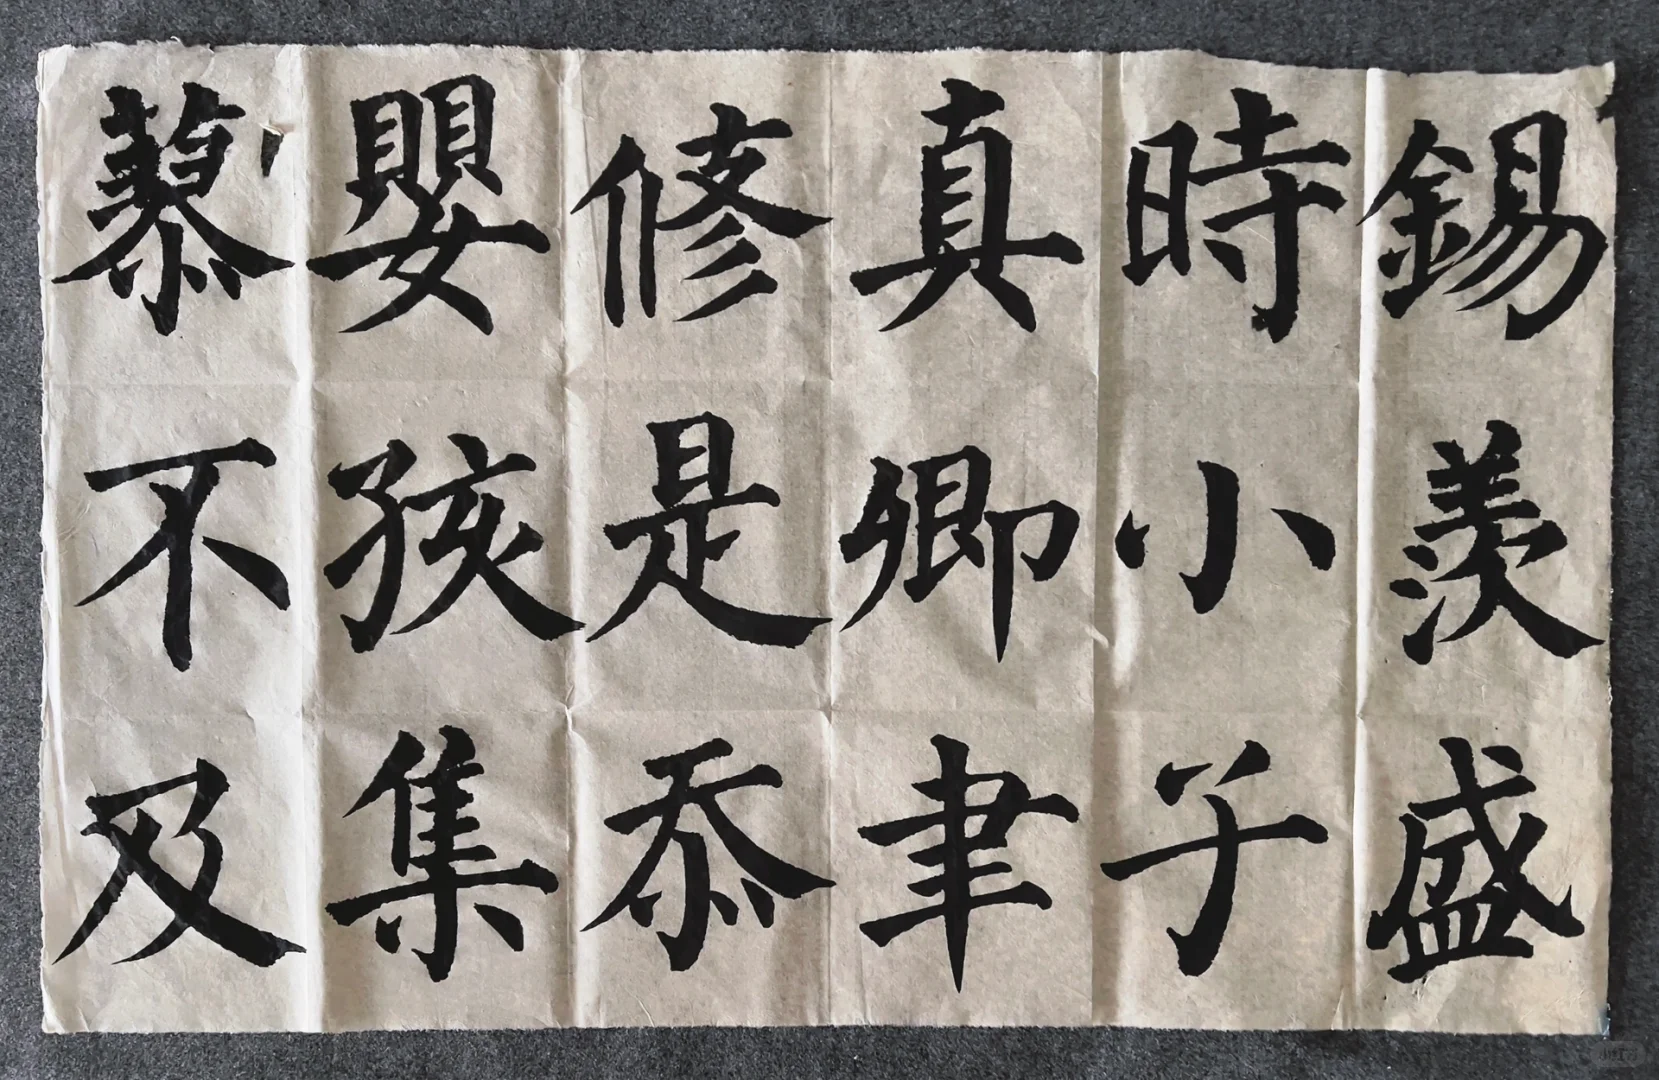 錫羨盛
時小子
真卿聿
修是忝
嬰孩集
蓼不及